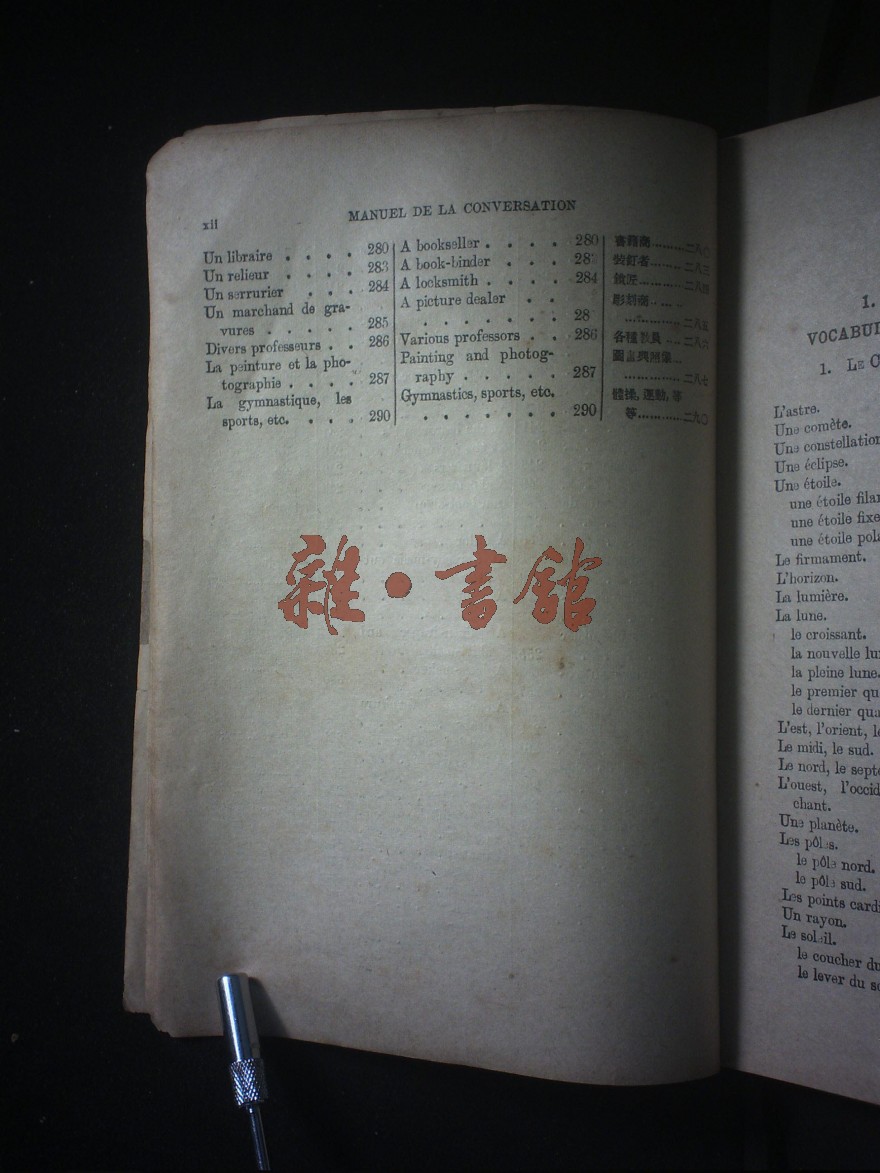 xii
MANUEL DE LA CONVERSATION
Un libraire . . . . 280
Un relieur . . . . 283
Un serrurier . . . 284
Un marchand de gra-
vures . . . . . 285
Divers professeurs . . 286
La peinture et la pho-
tographie . . . . 287
La gymnastique, les
sports, etc. . . . 290
A bookseller . . . . 280
A book-binder . . . 28
A locksmith . . . . 284
A picture dealer . .
. . . . . . . 28
Various professors . . 286
Painting and photog-
raphy . . . . . 287
Gymnastics, sports, etc.
. . . . . . . 290
書籍商………二八〇
裝釘者………二八三
銃匠………二八四
彫刻商……
………二八五
各種敎員……二八六
圖畫與照像…
…………二八七
體操,運動,等
等…………二九〇
雜·書館
1.
VOCABU
1. LE C
L'astre.
Une comète.
Une constellation
Une éclipse.
Une étoile.
une étoile fila
une étoile fixe
une étoile pola
Le firmament.
L'horizon.
La lumière.
La lune.
le croissant.
la nouvelle lu
la pleine lune.
le premier qu
le dernier qua
L'est, l'orient, le
Le midi, le sud.
Le nord, le septe
L'ouest, l'occid
chant.
Une planète.
Les pôles.
le pôle nord.
le pôle sud.
Les points cardi
Un rayon.
Le soleil.
le coucher du
le lever du so